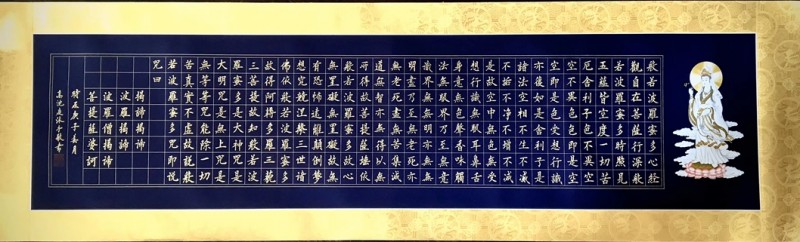 般若波羅蜜多心經
觀自在菩薩行深般
若波羅蜜多時照見
五蘊皆空度一切苦
厄舍利子色不異空
空不異色色即是空
空即是色受想行識
亦復如是舍利子是
諸法空相不生不滅
不垢不淨不增不減
是故空中無色無受
想行識無眼耳鼻舌
身意無色聲香味觸
法無眼界乃至無意
識界無無明亦無無
明盡乃至無老死亦
無老死盡無苦集滅
道無智亦無得以無
所得故菩提薩埵依
般若波羅蜜多故心
無罣礙無罣礙故無
有恐怖遠離顛倒夢
想究竟涅槃三世諸
佛依般若波羅蜜多
故得阿耨多羅三藐
三菩提故知般若波
羅蜜多是大神咒是
大明咒是無上咒是
無等等咒能除一切
苦真實不虛故說般
若波羅蜜多咒即說
咒曰
揭諦揭諦
波羅揭諦
波羅僧揭諦
菩提薩婆訶
時在庚子月